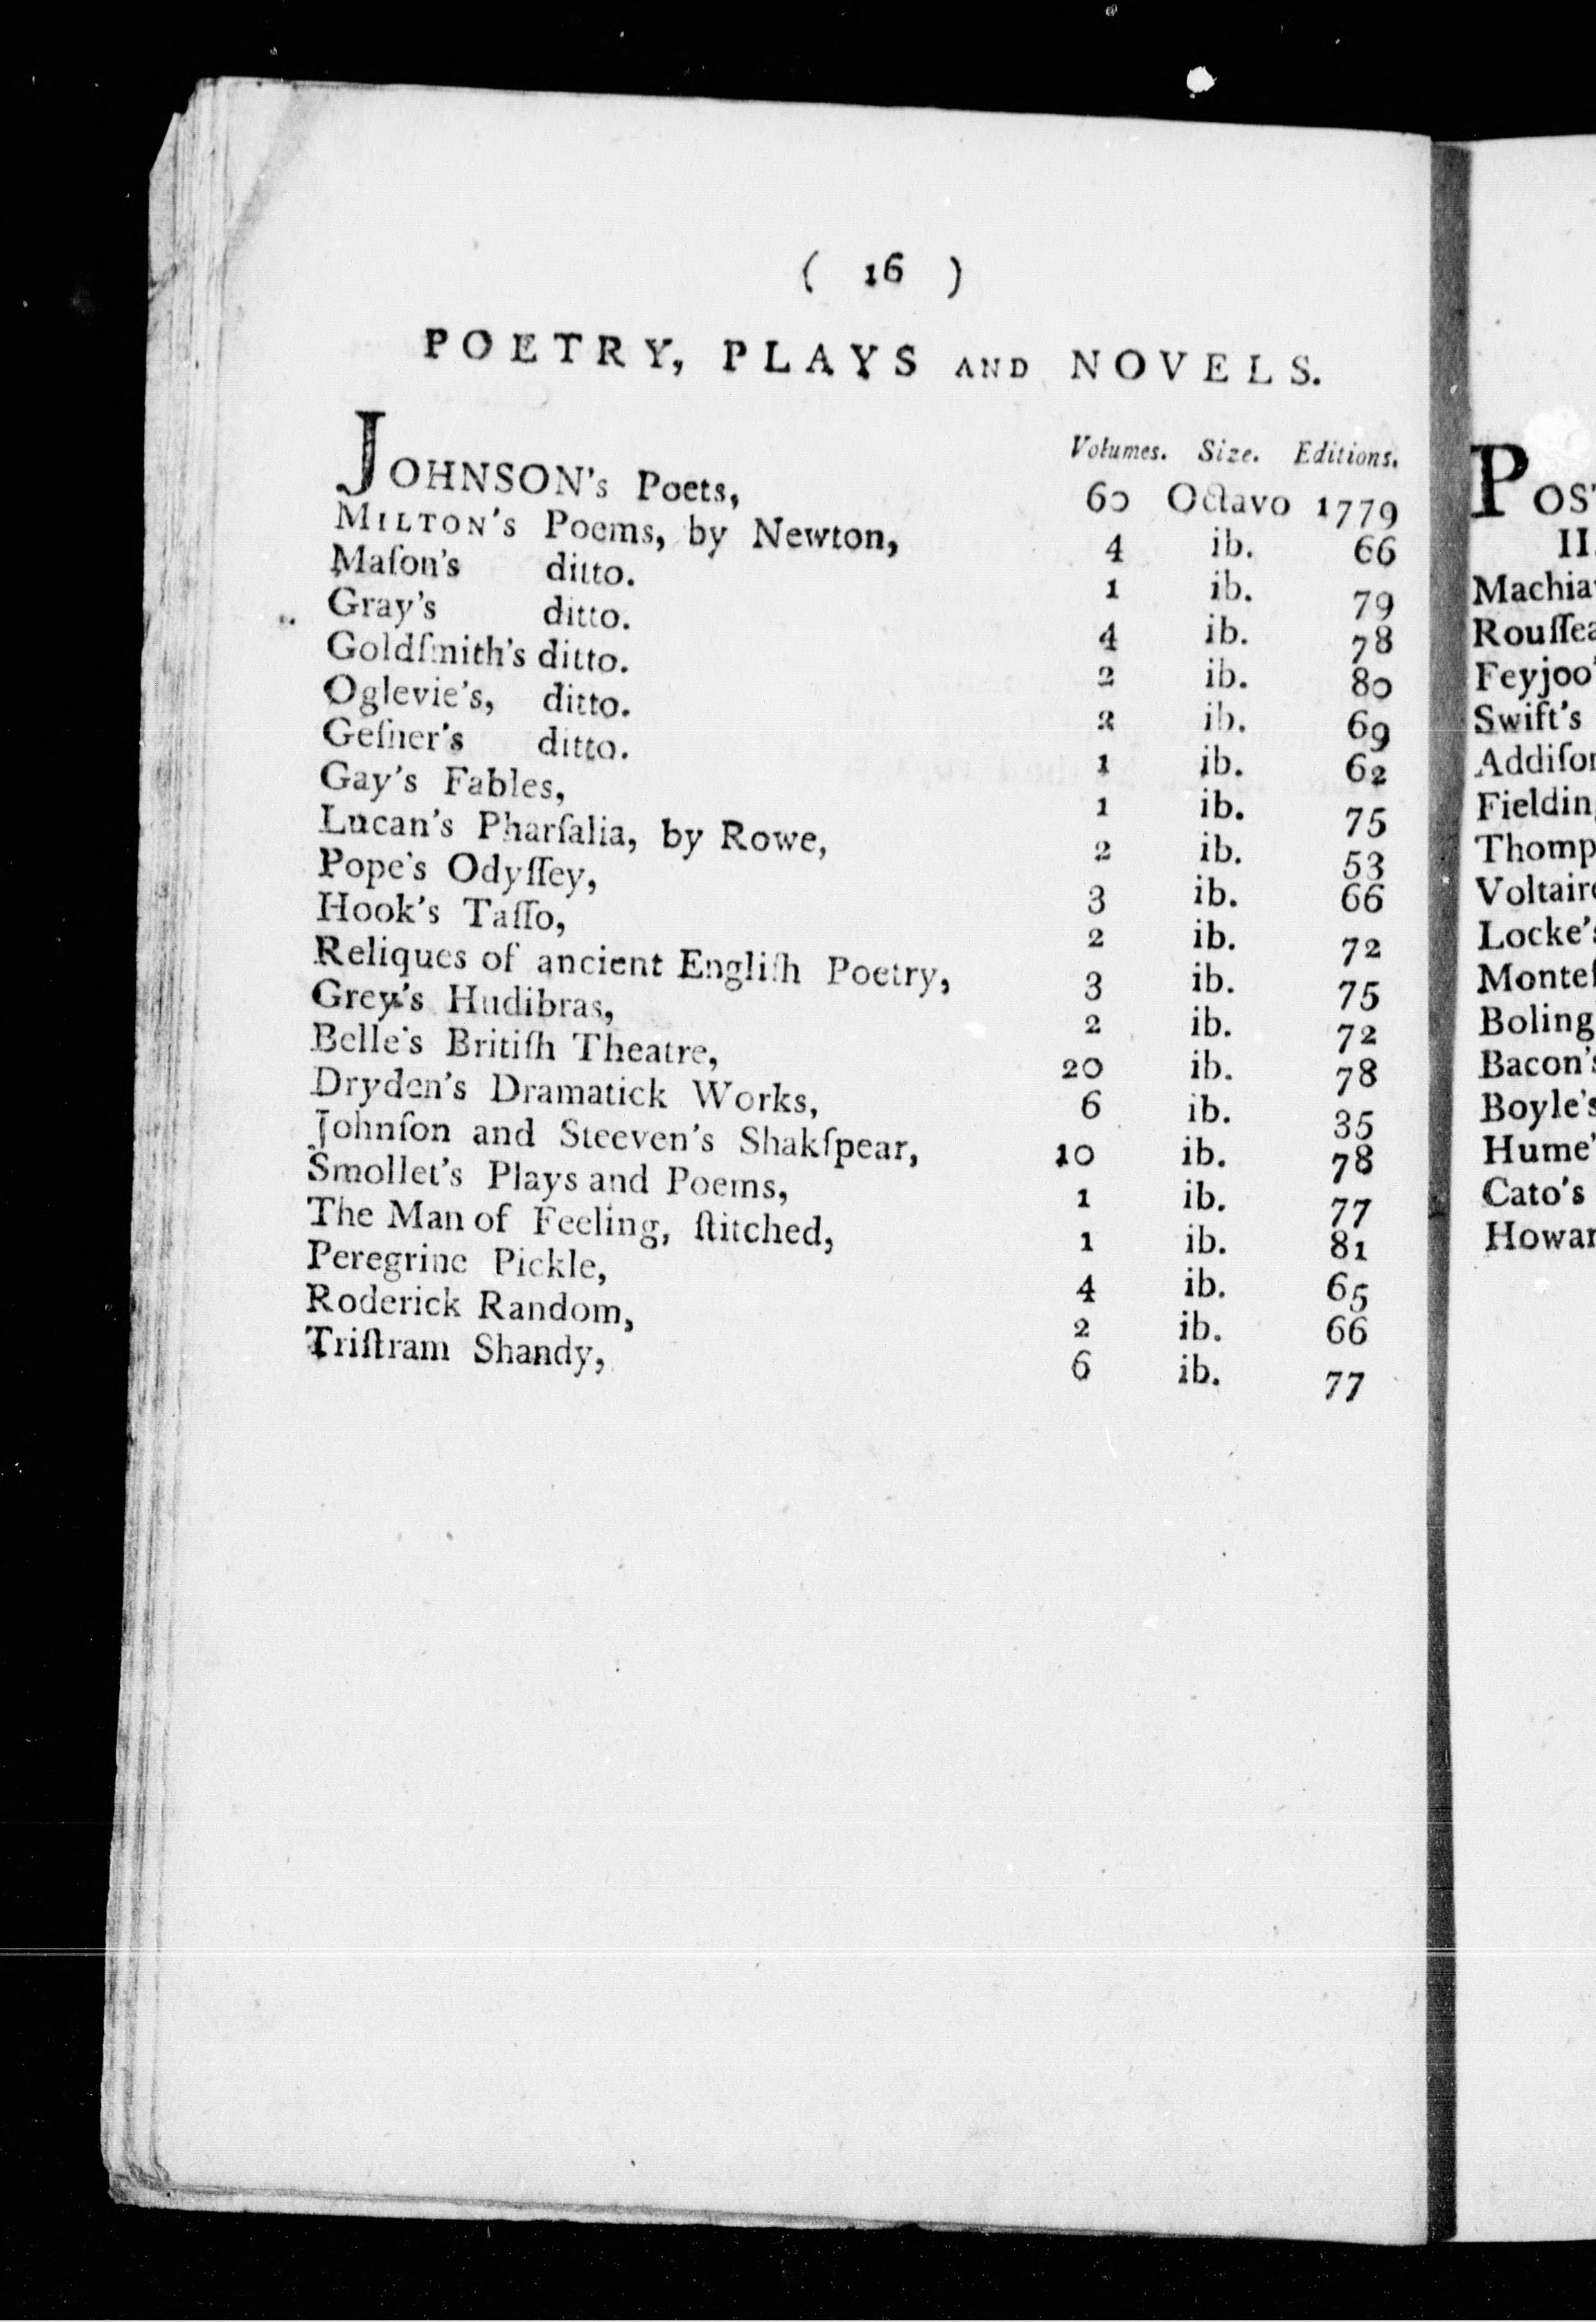 ( 16 )
POETRY, PLAYS AND NOVELS.
Volumes. Size. Editions.
JOHNSON's Poets, 60 Octavo 1779
MILTON's Poems, by Newton, 4 ib. 66
Maſon's ditto. 1 ib. 79
Gray's ditto. 4 ib. 78
Goldſmith's ditto. 2 ib. 80
Oglevie's, ditto. 2 ib. 69
Geſner's ditto. 1 ib. 62
Gay's Fables, 1 ib. 75
Lucan's Pharſalia, by Rowe, 2 ib. 53
Pope's Odyſſey, 3 ib. 66
Hook's Taſſo, 2 ib. 72
Reliques of ancient Engliſh Poetry, 3 ib. 75
Grey's Hudibras, 2 ib. 72
Belle's Britiſh Theatre, 20 ib. 78
Dryden's Dramatick Works, 6 ib. 35
Johnſon and Steeven's Shakſpear, 10 ib. 78
Smollet's Plays and Poems, 1 ib. 77
The Man of Feeling, ſtitched, 1 ib. 81
Peregrine Pickle, 4 ib. 65
Roderick Random, 2 ib. 66
Triſtram Shandy, 6 ib. 77
POS
II
Machia
Rouſſea
Feyjoo'
Swift's
Addiſon
Fieldin
Thomp
Voltaire
Locke's
Monteſ
Boling
Bacon's
Boyle's
Hume'
Cato's
Howar